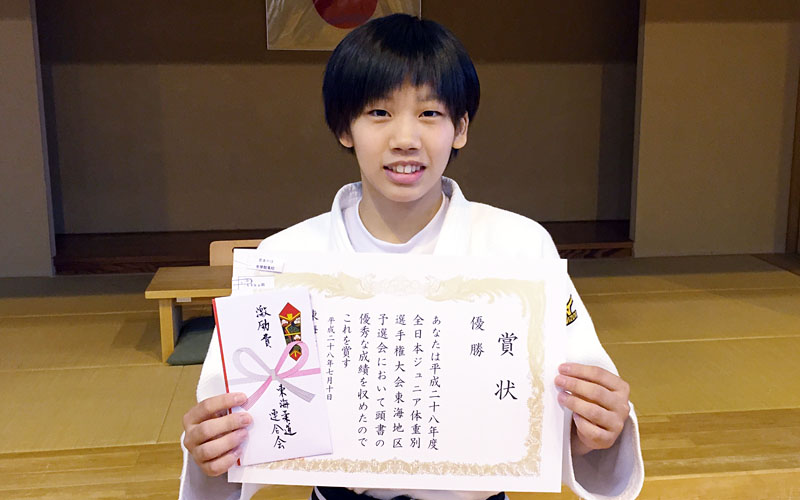 賞状
優勝
あなたは平成二十八年度
全日本ジュニア体重別
選手権大会東海地区
予選会において頭書の
優秀な成績を収めたので
これを賞す
平成二十八年七月十日
東海
激励賞
東海柔道
連合会